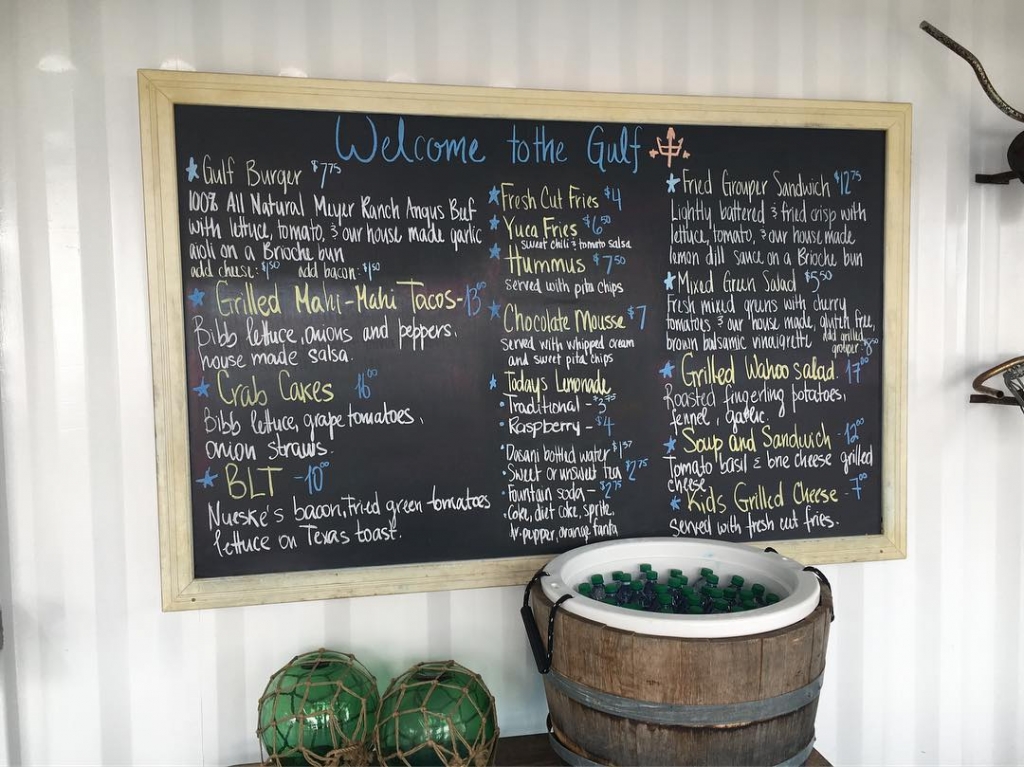 Welcome to the Gulf
Gulf Burger $7.75
100% All Natural Meyer Ranch Angus Beef
with lettuce, tomato, & our house made garlic
aioli on a Brioche bun
add cheese: $1.50 add bacon: $1.50
Grilled Mahi-Mahi Tacos-13.00
Bibb lettuce, onions and peppers,
house made salsa.
Crab Cakes 16.00
Bibb lettuce, grape tomatoes,
onion straws.
BLT -10.00
Nueske's bacon, fried green tomatoes
lettuce on Texas toast.
Fresh Cut Fries $4
Yuca Fries $6.50
sweet chili & tomato salsa
Hummus $7.50
served with pita chips
Chocolate Mousse $7
served with whipped cream
and sweet pita chips
Todays Lemonade
Traditional - $3.75
Raspberry - $4
Dasani bottled water
Sweet or unsweet tea $2.75
Fountain soda - $2.75
coke, diet coke, sprite,
dr. pepper, orange fanta
Fried Grouper Sandwich $12.75
Lightly battered & fried crisp with
lettuce, tomato, & our house made
lemon dill sauce on a Brioche bun
Mixed Green Salad $5.50
Fresh mixed greens with cherry
tomatoes & our house made, gluten free,
brown balsamic vinaigrette add grilled
grouper $8.50
Grilled Wahoo salad. 17.00
Roasted fingerling potatoes,
fennel, garlic.
Soup and Sandwich - 12.00
Tomato basil & brie cheese grilled
cheese.
Kids Grilled Cheese - 7.00
Served with fresh cut fries.